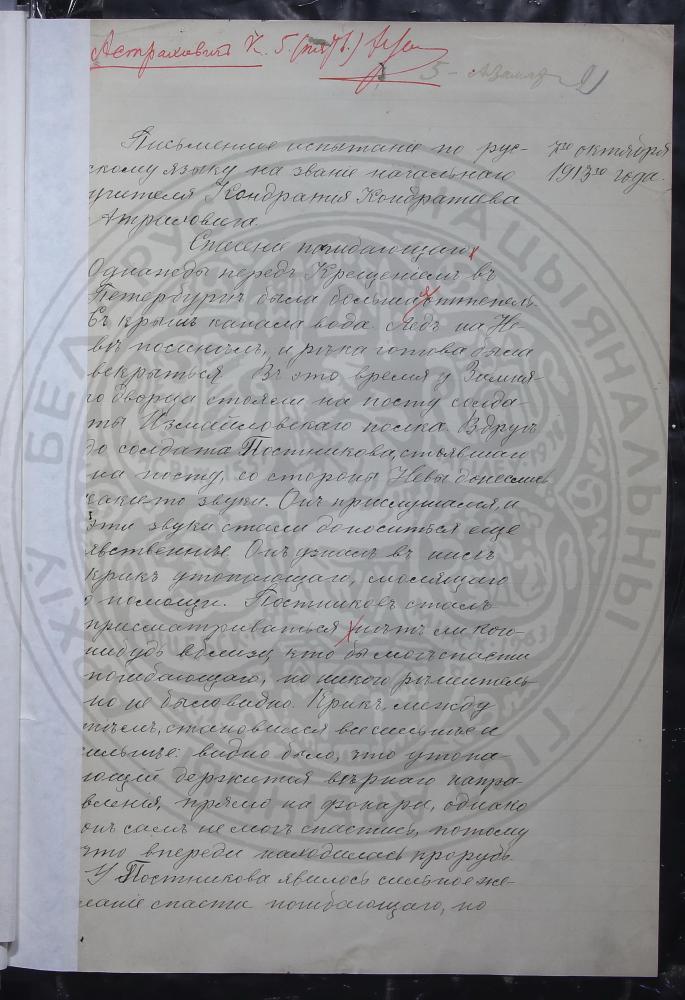 Астрахович К. 5. (пять)
5 -
Письменное испытание по рус-
скому языку на званіе начальнаго
учителя Кондратія Кондратьева
Атраховича.
7го октября
1913го года.
Спасеніе погибающаго
Однажды передъ Крещеніемъ въ
Петербургѣ была большая оттепель.
Съ крышъ капала вода. Ледъ на Не-
вѣ посинѣлъ, и рѣка готова была
вскрыться. Въ это время у Зимня-
го дворца стояли на посту солда-
ты Измайловскаго полка. Вдругъ
до солдата Постникова, стоявшаго
на посту, со стороны Невы донеслись
какіе то звуки. Онъ прислушался, и
эти звуки стали доноситься еще
явственнѣе. Онъ узналъ въ нихъ
крикъ утопающаго, молящаго
о помощи. Постниковъ сталъ
присматриваться нѣтъ ли кого-
нибудь вблизи, кто бы могъ спасти
погибающаго, но никого рѣшитель-
но не было видно. Крикъ между
тѣмъ, становился все сильнѣе и
сильнѣе: видно было, что утопа-
ющій держится вѣрнаго напра-
вленія, прямо на фонари, однако
онъ самъ не могъ спастись, потому
что впереди находилась прорубь.
У Постникова явилось сильное же-
ланіе спасти погибающаго, но
БЕЛАРУСІ
НАЦЫЯНАЛЬНЫ
АРХІЎ